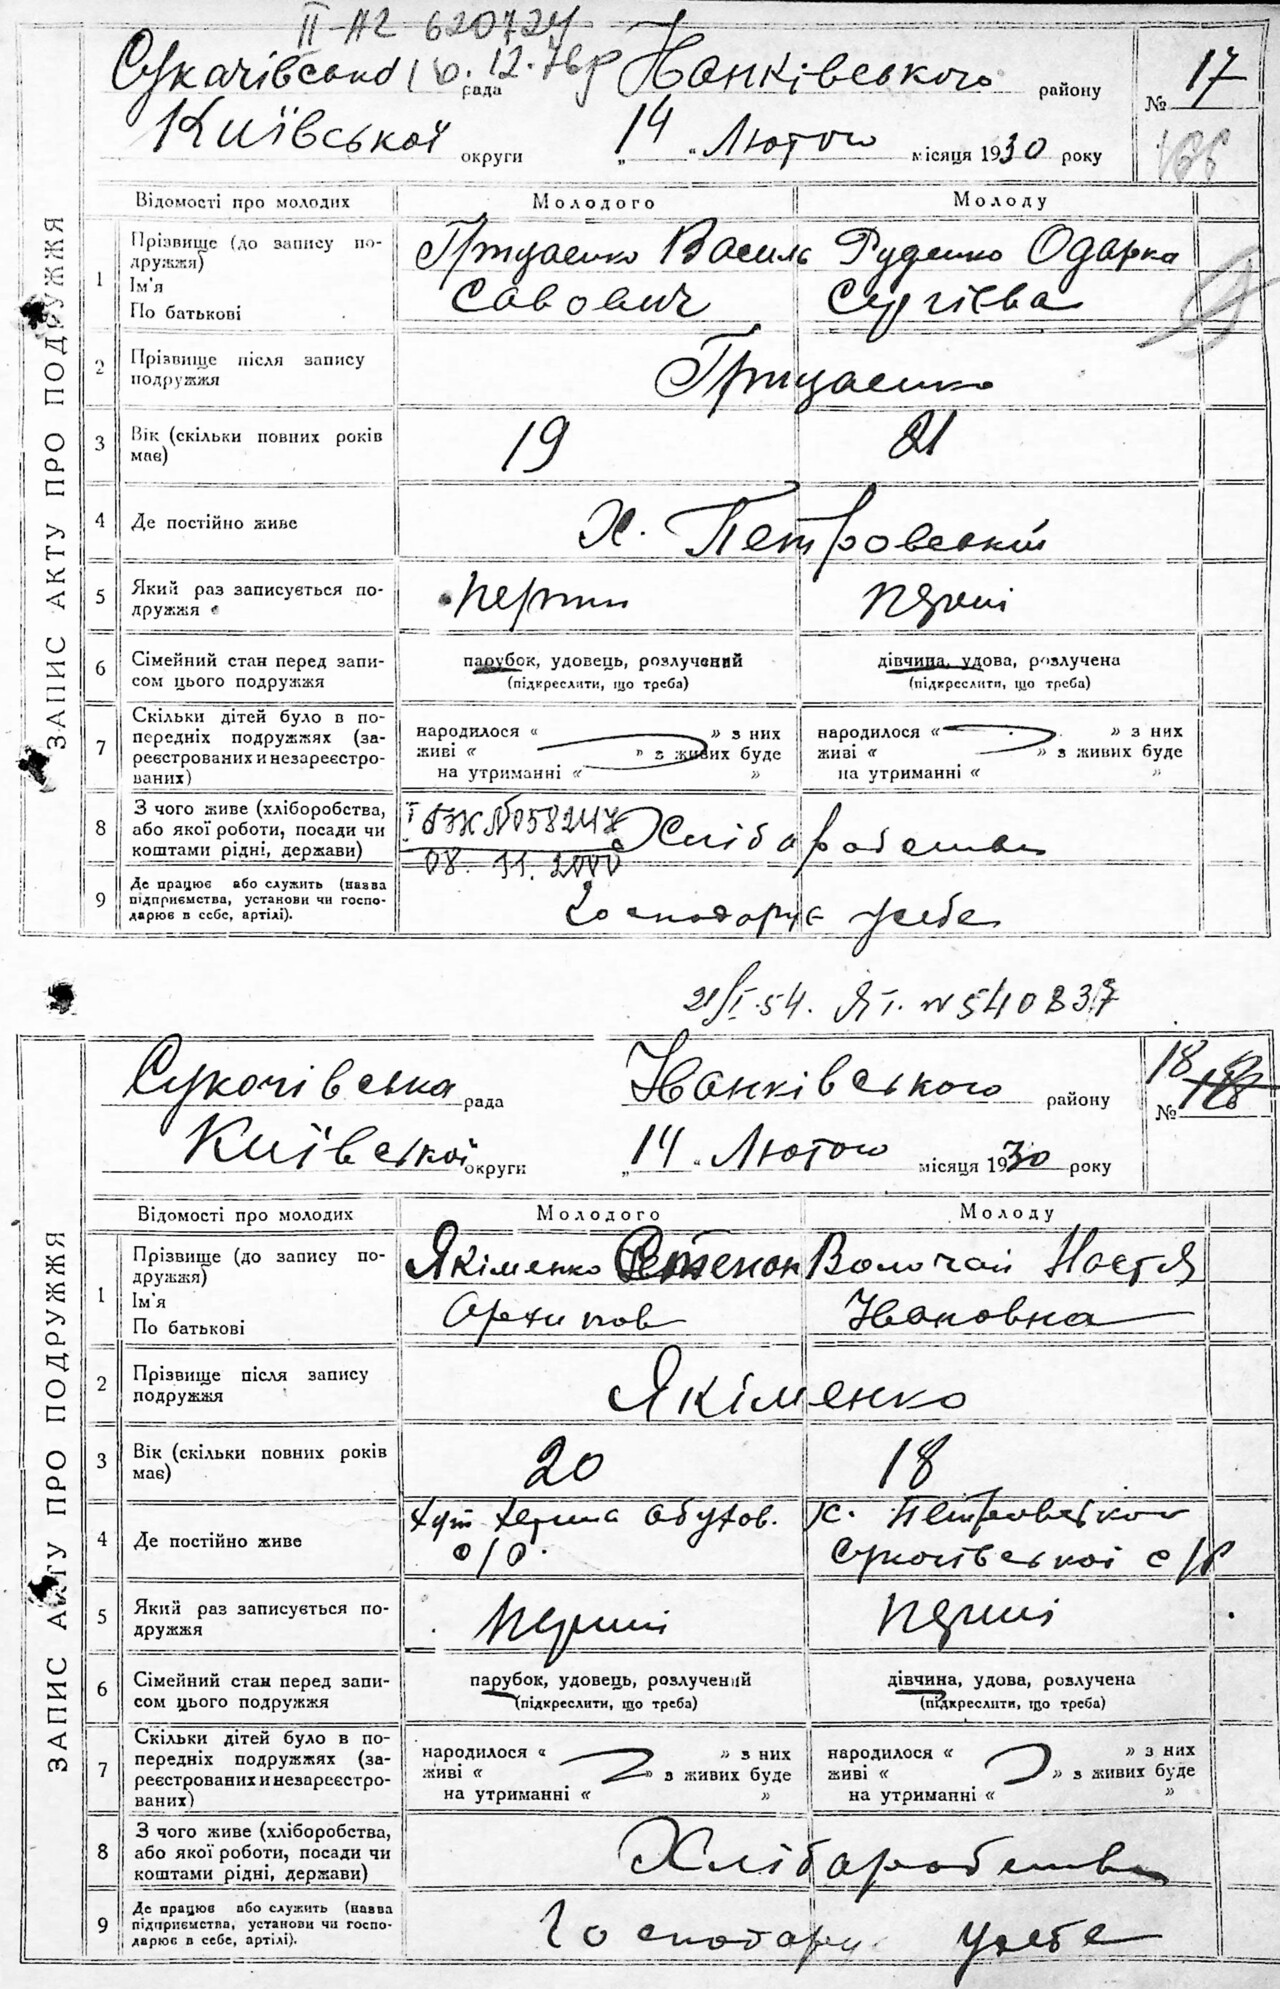 II-А2 620724
10.12.76р
Сукачівська рада Іванківського району
№ 17
Київської округи „14" Лютого місяця 1930 року
166
ЗАПИС АКТУ ПРО ПОДРУЖЖЯ
Відомості про молодих Молодого Молоду
1 Прізвище (до запису по-
дружжя)
Ім'я
По батькові
Грицаенко Василь Руденко Одарка
Савович Сергієва
2 Прізвище після запису
подружжя
Грицаенко
3 Вік (скільки повних років
має)
19 21
4 Де постійно живе Х. Петровський
5 Який раз записується по-
дружжя
перший перший
6 Сімейний стан перед запи-
сом цього подружжя
парубок, удовець, розлучений дівчина, удова, розлучена
(підкреслити, що треба) (підкреслити, що треба)
7 Скільки дітей було в по-
передніх подружжях (за-
реєстрованих и незареєстро-
ваних)
народилося « » з них народилося « » з них
живі « » з живих буде живі « » з живих буде
на утриманні « » на утриманні « »
8 З чого живе (хліборобства,
або якої роботи, посади чи
коштами рідні, держави)
І БЖ №058247 Хліборобства
08. 11. 2000
9 Де працює або служить (назва
підприємства, установи чи госпо-
дарює в себе, артілі).
Господарує усебе
21/I.54. ЯІ. № 540837
Сукочівська рада Іванківського району
№ 18
Київської округи „14" Лютого місяця 1930 року
ЗАПИС АКТУ ПРО ПОДРУЖЖЯ
Відомості про молодих Молодого Молоду
1 Прізвище (до запису по-
дружжя)
Ім'я
По батькові
Якіменко Степан Волочай Настя
Архипов Івановна
2 Прізвище після запису
подружжя
Якіменко
3 Вік (скільки повних років
має)
20 18
4 Де постійно живе
хут Обухов. х. Петровского
с/р. Сукочівської с/р
5 Який раз записується по-
дружжя
перший перший
6 Сімейний стан перед запи-
сом цього подружжя
парубок, удовець, розлучений дівчина, удова, розлучена
(підкреслити, що треба) (підкреслити, що треба)
7 Скільки дітей було в по-
передніх подружжях (за-
реєстрованих и незареєстро-
ваних)
народилося « » з них народилося « » з них
живі « » з живих буде живі « » з живих буде
на утриманні « » на утриманні « »
8 З чого живе (хліборобства,
або якої роботи, посади чи
коштами рідні, держави)
Хлібаробства
9 Де працює або служить (назва
підприємства, установи чи госпо-
дарює в себе, артілі).
Господарує усебе